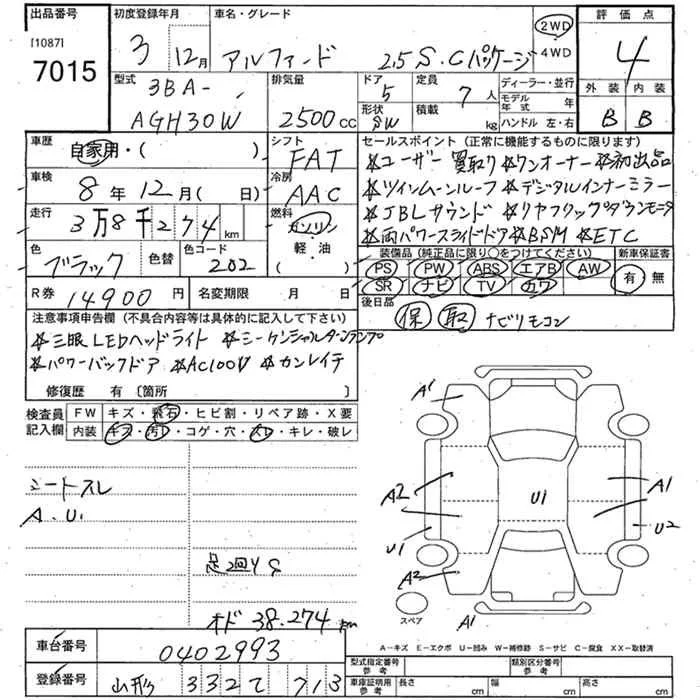 出品番号
[1087]
7015
初度登録年月
3 12月
車名・グレード
アルファード 2.5 S.Cパッケージ
2WD
4WD
評価点
4
外装 内装
B B
型式
3BA-
AGH30W
排気量
2500cc
ドア
5
定員
7人
形状
SW
積載
kg
ディーラー・並行
モデル年式 年
ハンドル 左・右
車歴
自家用・( )
シフト
FAT
車検
8年 12月( 日)
冷房
AAC
走行
3万8千274km
燃料
ガソリン
軽・油
( )
色
ブラック
色替
色コード
202
セールスポイント (正常に機能するものに限ります)
*ユーザー買取り *ワンオーナー *初出品
*ツインムーンルーフ *デジタルインナーミラー
*JBLサウンド *リヤフリップダウンモニタ
*両パワースライドドア *BSM *ETC
装備品(純正品に限り○をつけてください)
PS PW ABS エアB AW
SR ナビ TV カワ
新車保証書
有 無
R券 14900円
名変期限 月 日
後日品
保 取 ナビリモコン
注意事項申告欄 (不具合内容等は具体的に記入して下さい)
*三眼LEDヘッドライト *シーケンシャルターンランプ
*パワーバックドア *AC100V *カンレイチ
修復歴 有 〔箇所 〕
検査員記入欄
FW キズ・飛石・ヒビ割・リペア跡・X要
内装 キズ・汚レ・コゲ・穴・スレ・キレ・破レ
シートスレ
A.U1
足回りS
オド 38.274km
A1
A2
U1
A2
U1
A1
U2
A1
スペア
A−キズ E−エクボ U−凹み W−補修跡 S−サビ C−腐食 XX−取替済
車台番号
0402993
登録番号
山形 332 て 713
型式指定番号
参考
類別区分番号
参考
車庫証明用
参考
長さ cm
幅 cm
高さ cm